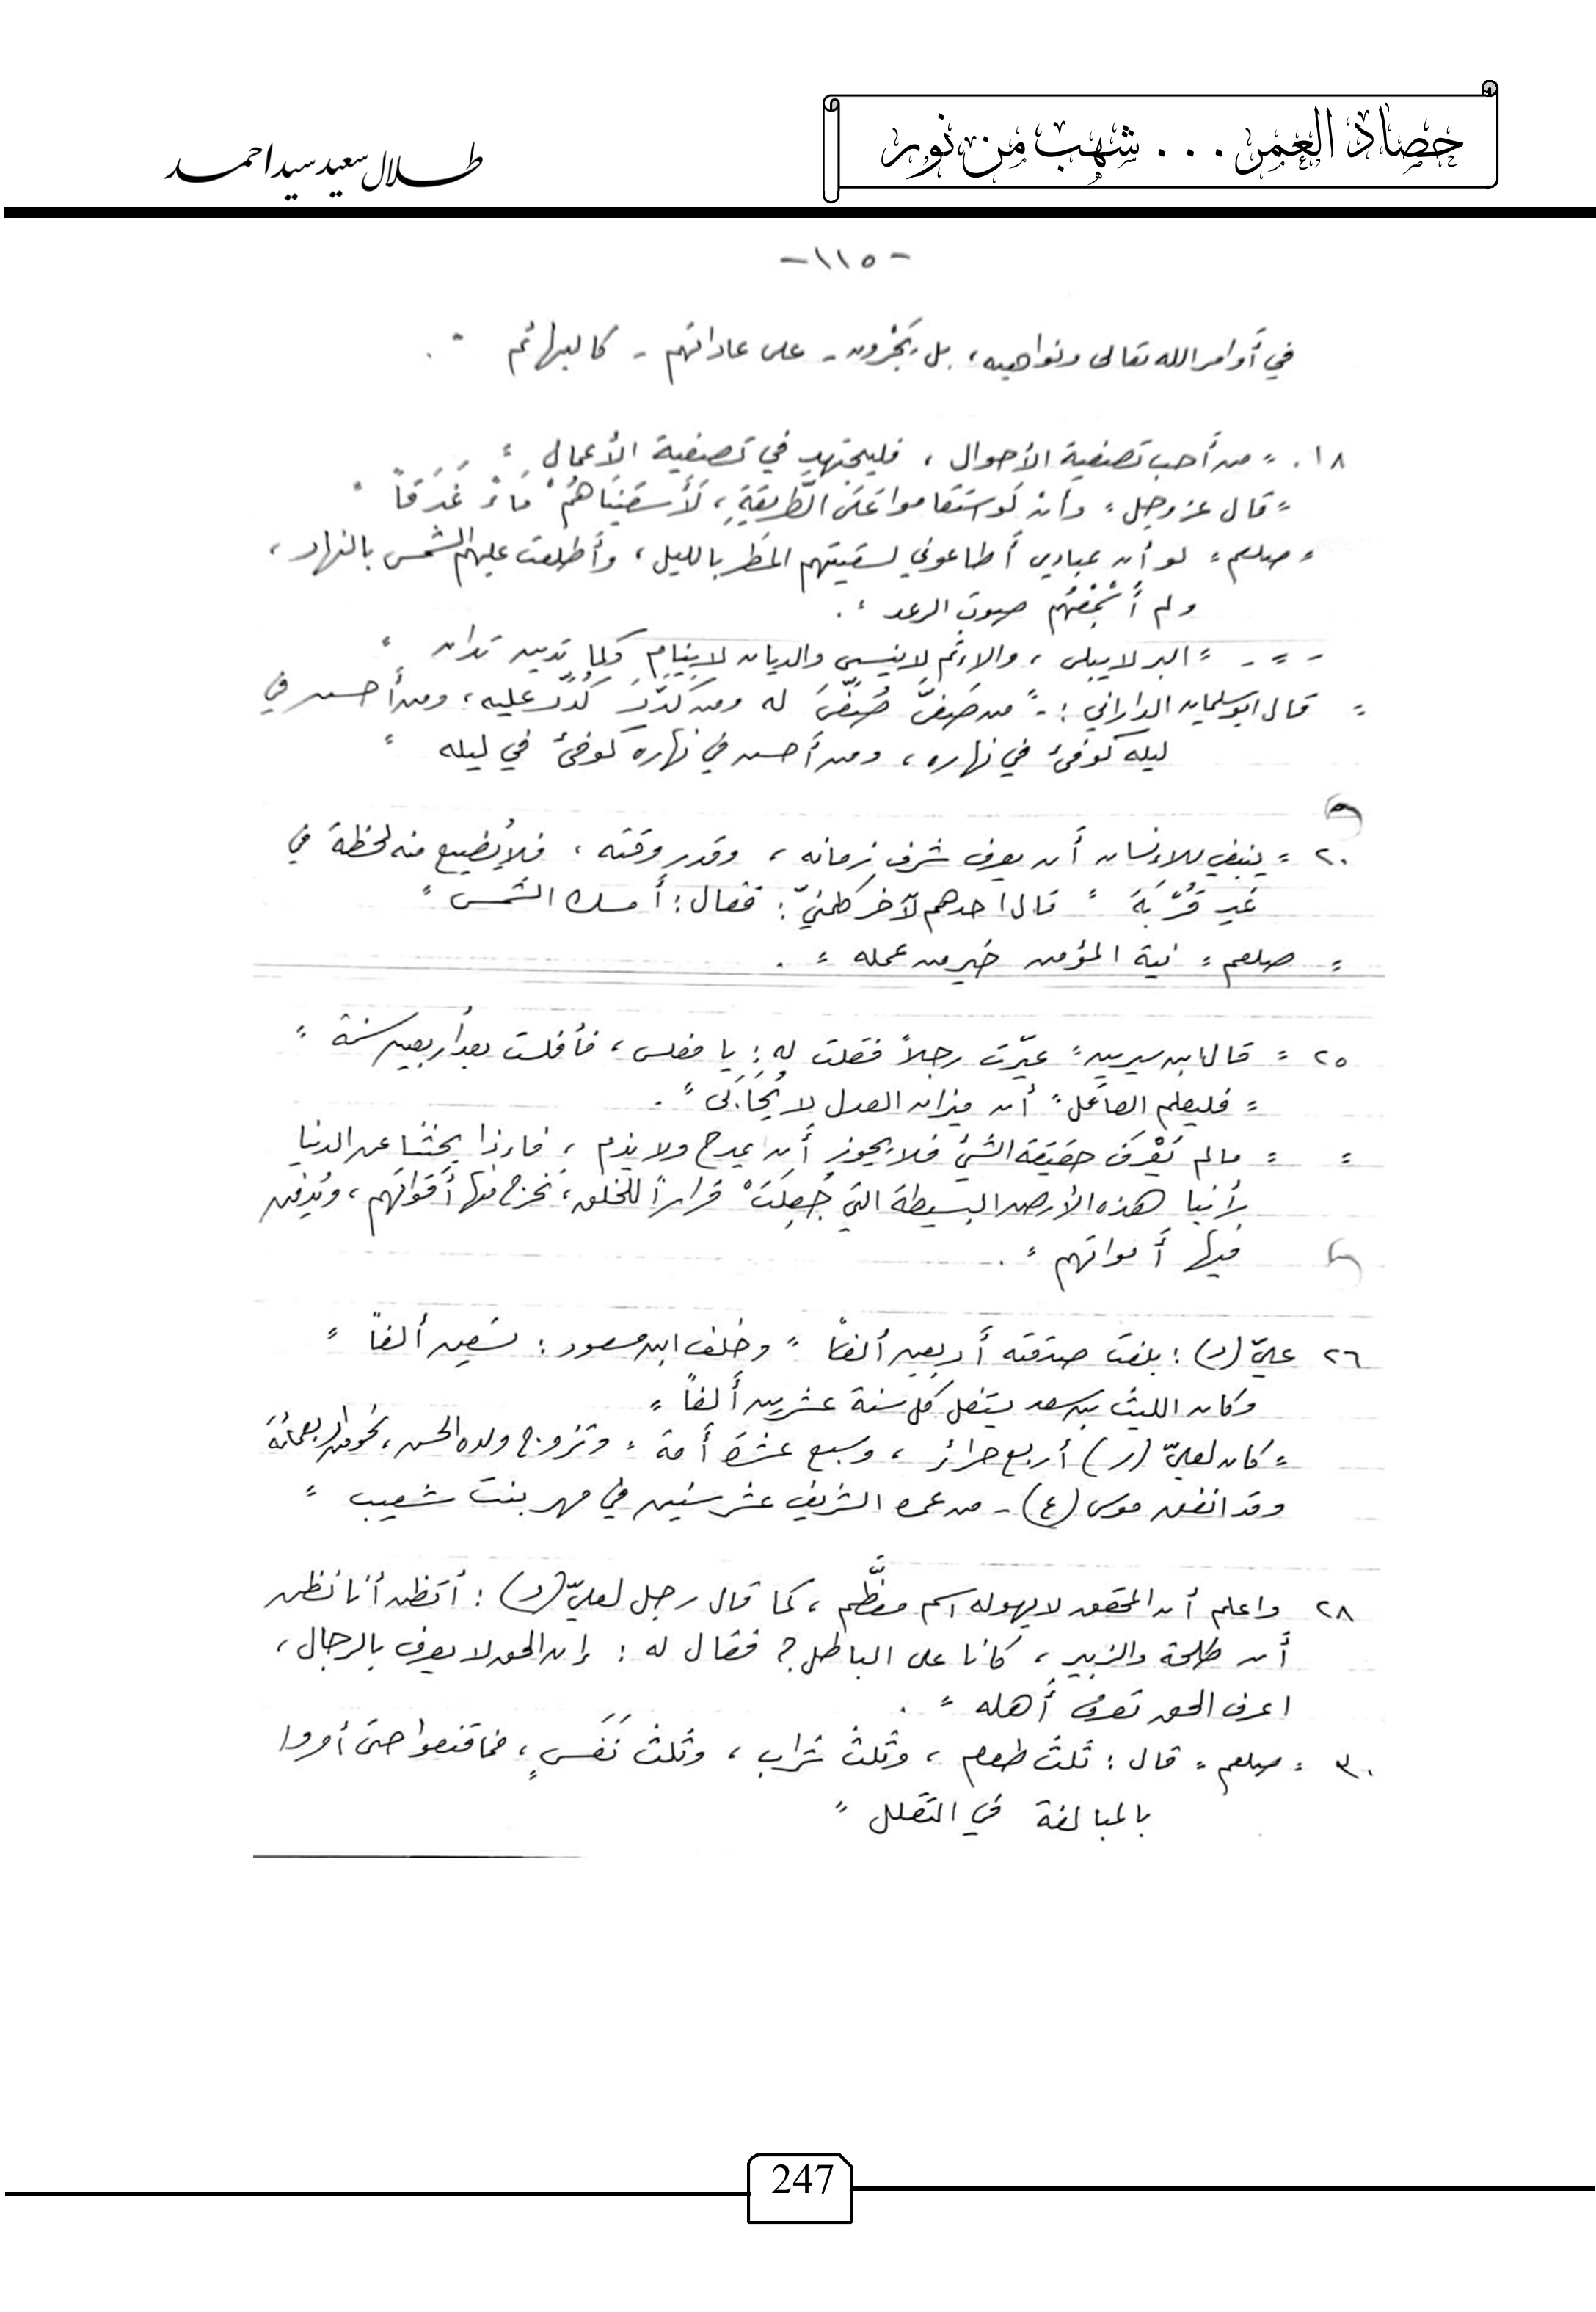 حصاد العمر . . . شهب من نور
طلال سعيد سيد احمد
-١١٥-
في أوامر الله تعالى ونواهيه، بل يَجْرون - على عاداتهم - كالبهائم " .
١٨ . " من أحب تصفية الأحوال ، فليجتهد في تصفية الأعمال "
" قال عز وجل " وأن لَو استَقاموا عَلى الطَّريقَةِ ، لَأَسقَينَاهُمْ مَاءً غَدَقاً "
" صلعم " لو أن عبادي أطاعوني لسقيتهم المَطر بالليل ، وأطلعت عليهم الشمس بالنهار ،
ولم أُسْمِعْهُم صوت الرعد " .
- " - " البر لا يبلى ، والإثم لا ينسى والديان لا ينام وكما تدين تدان "
" قال ابو سليمان الداراني : - " من صَفَّى صُفِّيَ له ومن كَدَّرَ كُدِّرَ عليه ، ومن أحسن في
ليله كوفئ في نهاره ، ومن أحسن في نهاره كوفئ في ليله "
٢٠ " ينبغي للإنسان أن يعرف شرف زمانه ، وقدر وقته ، فلا يُضيع منه لحظة في
غير قُرْبَة " قال احدهم لآخر كلمنيّ : فقال : أمسك الشمس "
" صلعم " نية المؤمن خير من عمله " .
٢٥ " قال ابن سيرين " عيّرت رجلاً فقلت له : يا مفلس ، فأفلست بعد أربعين سنة "
" فليعلم العاقل " أن ميزان العدل لا يُحَابَى " .
" " مالم تُعْرَف حقيقة الشئ فلا يجوز أن يمدح ولا يذم ، فإذا بحثنا عن الدنيا
رأينا هذه الأرض البسيطة التي جُعِلَتْ قراراً للخلق ، تخرج منها أقواتهم ، ويُدفن
فيها أمواتهم " .
٢٦ عليّ (ر) : بلغت صدقته أربعين ألفاً " وخلف ابن مسعود : تسعين ألفاً "
وكان الليث بن سعد يستغل كل سنة عشرين ألفاً "
" كان لعليّ (ر) أربع حرائر ، وسبع عشرة أمة " وتزوج ولده الحسن ، نحو من اربعمائة
وقد انفق موسى (ع) - من عمره الشريف عشر سنين في مهر بنت شعيب "
٢٨ واعلم أن المحقق لا يهوله اسم معظَّم ، كما قال رجل لعليّ (ر) : أتظن أنا نظن
أن طلحة والزبير ، كانا على الباطل ؟ فقال له : إن الحق لا يعرف بالرجال ،
اعرف الحق تعرف أهله " .
٣٠ " صلعم " قال : ثلث طعام ، وثلث شراب ، وثلث نَفَسٍ ، فما قنعوا حتى أمروا
بالمبالغة في التقلل "
247